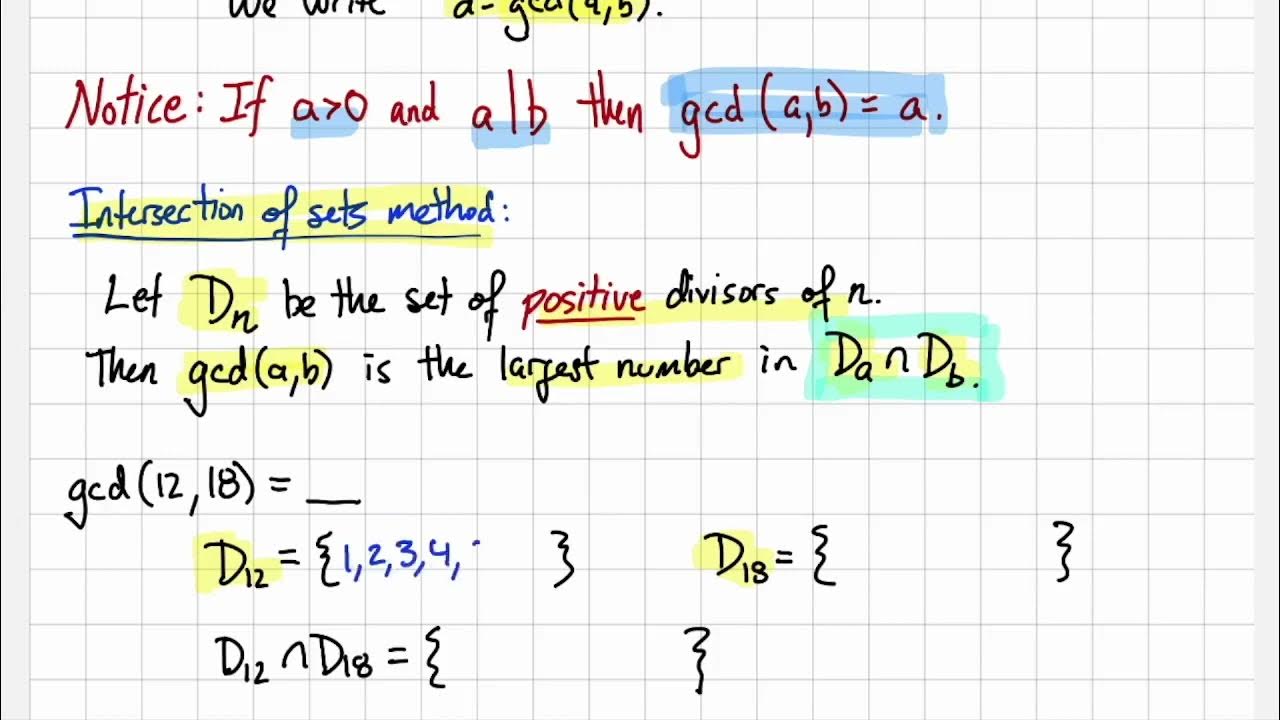 We write d=gcd(a,b).
Notice: If a>0 and a|b then gcd(a,b)=a.
Intersection of sets method:
Let Dₙ be the set of positive divisors of n.
Then gcd(a,b) is the largest number in Dₐ∩D_b.
gcd(12,18)= __
D₁₂={1,2,3,4, } D₁₈={ }
D₁₂∩D₁₈={ }